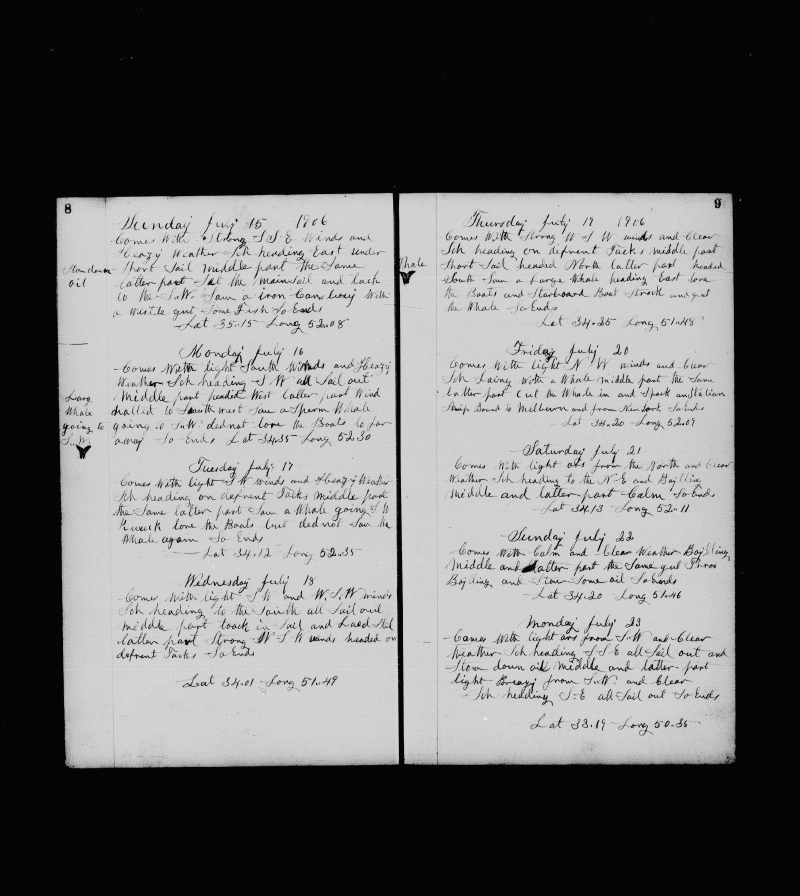 8
Sunday July 15 1906
Comes With Strong S S E Winds and
Heazy Weather Sch heading East under
Short Sail middle part the Same
latter part Set the mainsail and tack
to the S.W. Saw a iron Can buoy With
a Wistle gut Some Fish So Ends
Lat 35.15 Long 52.08
Stow down
oil
Monday July 16
Comes With light South Winds and Heazy
Weather Sch heading S W all Sail out
Middle part headid West latter part Wind
halled to South west Saw a Sperm Whale
going to S.W. did not lore the Boats to far
away So Ends Lat 34.35 Long 52.30
Larg
Whale
going to
S.W.
Tuesday July 17
Comes With light S W Winds and Heazy Weather
Sch heading on defrent Tacks Middle part
the Same latter part Saw a Whale going S W
lore the Boats but did not Saw the
Whale again So Ends
Lat 34.12 Long 52.35
Wednesday July 18
Comes With light S W and W.S.W Winds
Sch heading to the South all Sail out
middle part toock in Sail and
latter part Strong W S W Winds headed on
defrent Tacks So Ends
Lat 34.01 Long 51.49
9
Thursday July 19 1906
Comes With Strong W S W winds and Clear
Sch heading on defrent Tacks middle part
Short Sail headed North latter part headed
South Saw a Large Whale heading East lore
the Boats and Starboard Boat Struck and gut
the Whale So Ends
Lat 34.25 Long 51.48
Whale
Friday July 20
Comes With light N W winds and Clear
Sch Laing With a Whale middle part the Same
latter part Cut the Whale in and Spock an
Ship Bound to Melbourn and from New York So Ends
Lat 34.20 Long 52.09
Saturday July 21
Comes With light ars from the North and Clear
Weather Sch heading to the N E and Bojlling
Middle and latter part Calm So Ends
Lat 34.13 Long 52.11
Sunday July 22
Comes With Calm and Clear Weather Bojlling
Middle and latter part the Same gut Throo
Bojling and Stow Some oil So Ends
Lat 34.20 Long 51.46
Monday July 23
Comes With light ars from S.W and Clear
Weather Sch heading S S E all Sail out and
Stow down oil middle and latter part
light Breazy from S.W. and Clear
Sch heading S-E all Sail out So Ends
Lat 33.19 Long 50.35